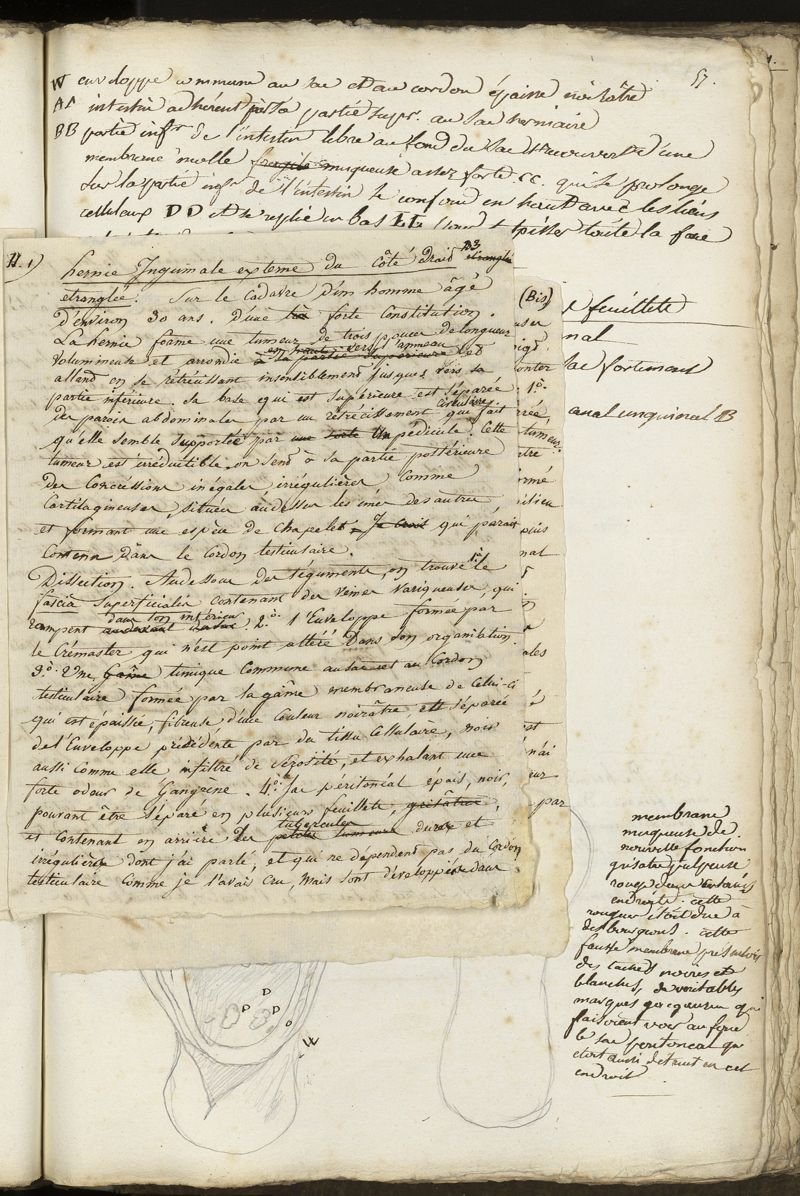 57.
W enveloppe commune au sac et au cordon épaisse noirâtre
AA intestin adhérent par sa partie supr. au sac herniaire
BB partie infr. de l'intestin libre au fond du sac et recouverte d'une
membrane molle fragile muqueuse assez forte. CC. qui se prolonge
sur la partie infr. de l'intestin se confond en haut avec les liens
celluleux DD et se replie en bas EE pour tapisser toute la face
H. 1) hernie Inguinale externe du côté droit n3 étranglée
étranglée. Sur le cadavre d'un homme âgé
d'environ 30 ans. D'une forte constitution.
La hernie forme une tumeur de trois pouces de longueur
volumineuse et arrondie en haut vers l'anneau à sa partie supérieure et
allant en se rétrécissant insensiblement jusques vers sa
partie inférieure. Sa base qui est supérieure est séparée
des parois abdominales par un rétrécissement circulaire qui fait
qu'elle semble supportée par une sorte un pédicule. Cette tumeur
tumeur est irréductible. on sent à sa partie postérieure
des concrétions inégales irrégulières comme
cartilagineuses, situées au dessus les unes des autres,
et formant une espèce de chapelet. Je crois qui parait
contenu dans le cordon testiculaire.
Dissection. Au dessous des téguments, on trouve 1o. le
fascia superficialis contenant des veines variqueuses, qui
rampent dans son intérieur 2.o l'Enveloppe formée par
le Crémaster qui n'est point altéré dans son organisation.
3.o Une Gaîne tunique commune au sac et au Cordon
testiculaire formée par la gaîne membraneuse de celui-ci
qui est épaissie, fibreuse d'une couleur noirâtre, est séparée
de l'Enveloppe précédente par du tissu cellulaire, noir
aussi comme elle infiltré de sérosité, et exhalant une
forte odeur de Gangrène. 4.o le sac péritonéal épais, noir,
pouvant être séparé en plusieurs feuillets, grisâtres,
et contenant en arrière les tubercules petites tumeurs durs et
irréguliers dont j'ai parlé, et qui ne dépendent pas du Cordon
testiculaire comme je l'avais cru, mais sont développés dans
(Bis)
feuillets
nal
sac fortement
canal inguinal B
1o.
par
membrane
muqueuse de
nouvelle fonction
grisatre pulpeuse
rouge dans certains
endroits. cette
rougeur était due à
des bourgeons. cette
fausse membrane présentoit
des taches noires et
blanches, de veritables
marques gangreneuses qui
faisoient voir au fond
le sac peritoneal qui
etoit aussi detruit en cet
endroit.
D
D
D
D
W